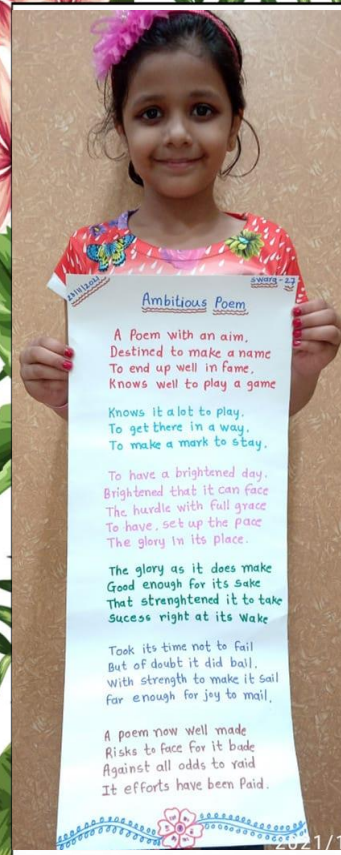 23/11/2021
Swara - 27
Ambitious Poem
A Poem with an aim,
Destined to make a name
To end up well in fame,
Knows well to play a game
Knows it a lot to play.
To get there in a way,
To make a mark to stay.
To have a brightened day.
Brightened that it can face
The hurdle with full grace
To have, set up the pace
The glory In its place.
The glory as it does make
Good enough for its sake
That strenghtened it to take
Sucess right at its wake
Took its time not to fail
But of doubt it did bail,
With strength to make it sail
Far enough for joy to mail,
A poem now well made
Risks to face for it bade
Against all odds to raid
It efforts have been Paid.
2021/1